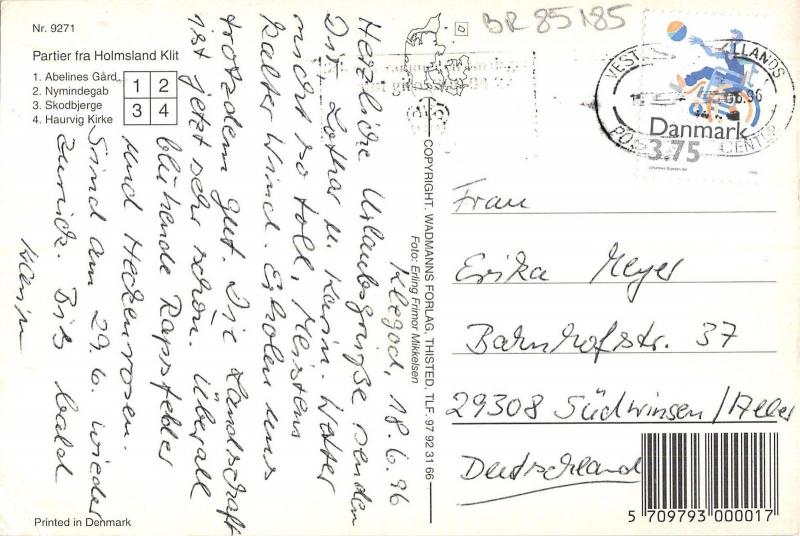 Nr. 9271
BR 85185
Partier fra Holmsland Klit
1. Abelines Gård
2. Nymindegab
3. Skodbjerge
4. Haurvig Kirke
1 2
3 4
Klegod, 18.6.96
Herzliche Urlaubsgrüße senden
Dir Lothar u. Karin. Wetter
nicht so toll, Meistens
kalter Wind. Erholen uns
trotzdem gut. Die Landschaft
ist jetzt sehr schön. Überall
blühende Rapsfelder
und Heckenrosen.
Sind am 29.6. wieder
zurück. Bis bald
Karin
COPYRIGHT. WADMANNS FORLAG, THISTED, TLF. 97 92 31 66
Foto: Erling Frimor Mikkelsen
Danmark
3.75
06.96
CENTER
Frau
Erika Meyer
Bahnhofstr. 37
29308 Südwinsen/Aller
Deutschland
5 709793 000017
Printed in Denmark